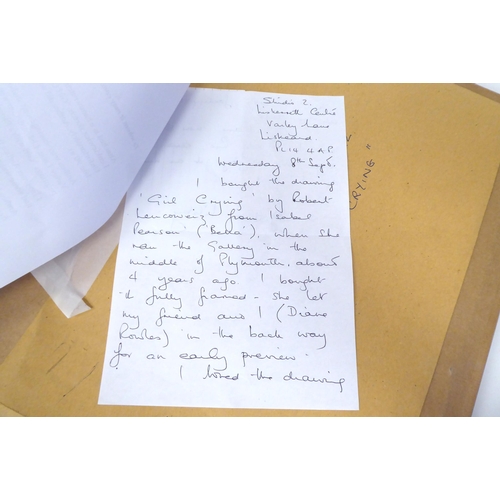 Studio 2.
Liskerrett Centre
Varley Lane
Liskeard
PL14 4AP
Wednesday 8th Sept.
I bought the drawing
'Girl Crying' by Robert
from Isobel
Pearson ('Bella'), when she
ran the Gallery in the
middle of Plymouth, about
4 years ago. I bought
it fully framed - she let
my friend and I (Diane
) in the back way
for an early preview.
I loved the drawing
CRYING "